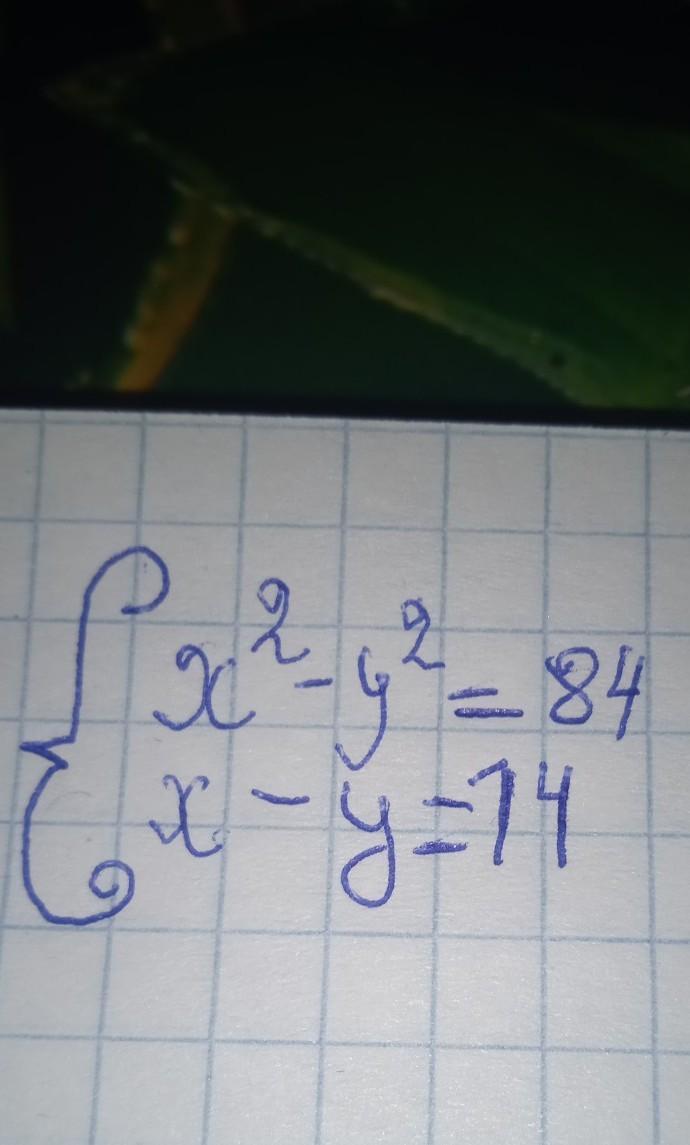 x² - y² = 84
x - y = 14